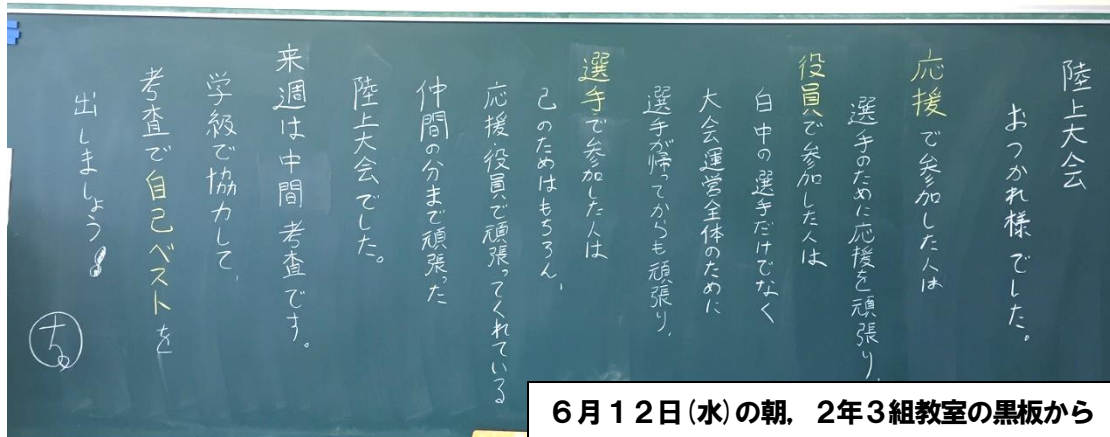 陸上大会
おつかれ様でした。
応援で参加した人は
選手のために応援を頑張り、
役員で参加した人は
白中の選手だけでなく
大会運営全体のために
選手が帰ってからも頑張り、
選手で参加した人は
己のためはもちろん、
応援・役員で頑張ってくれている
仲間の分まで頑張った
陸上大会でした。
来週は中間考査です。
学級で協力して、
考査で自己ベストを
出しましょう!
６月１２日(水)の朝，２年３組教室の黒板から